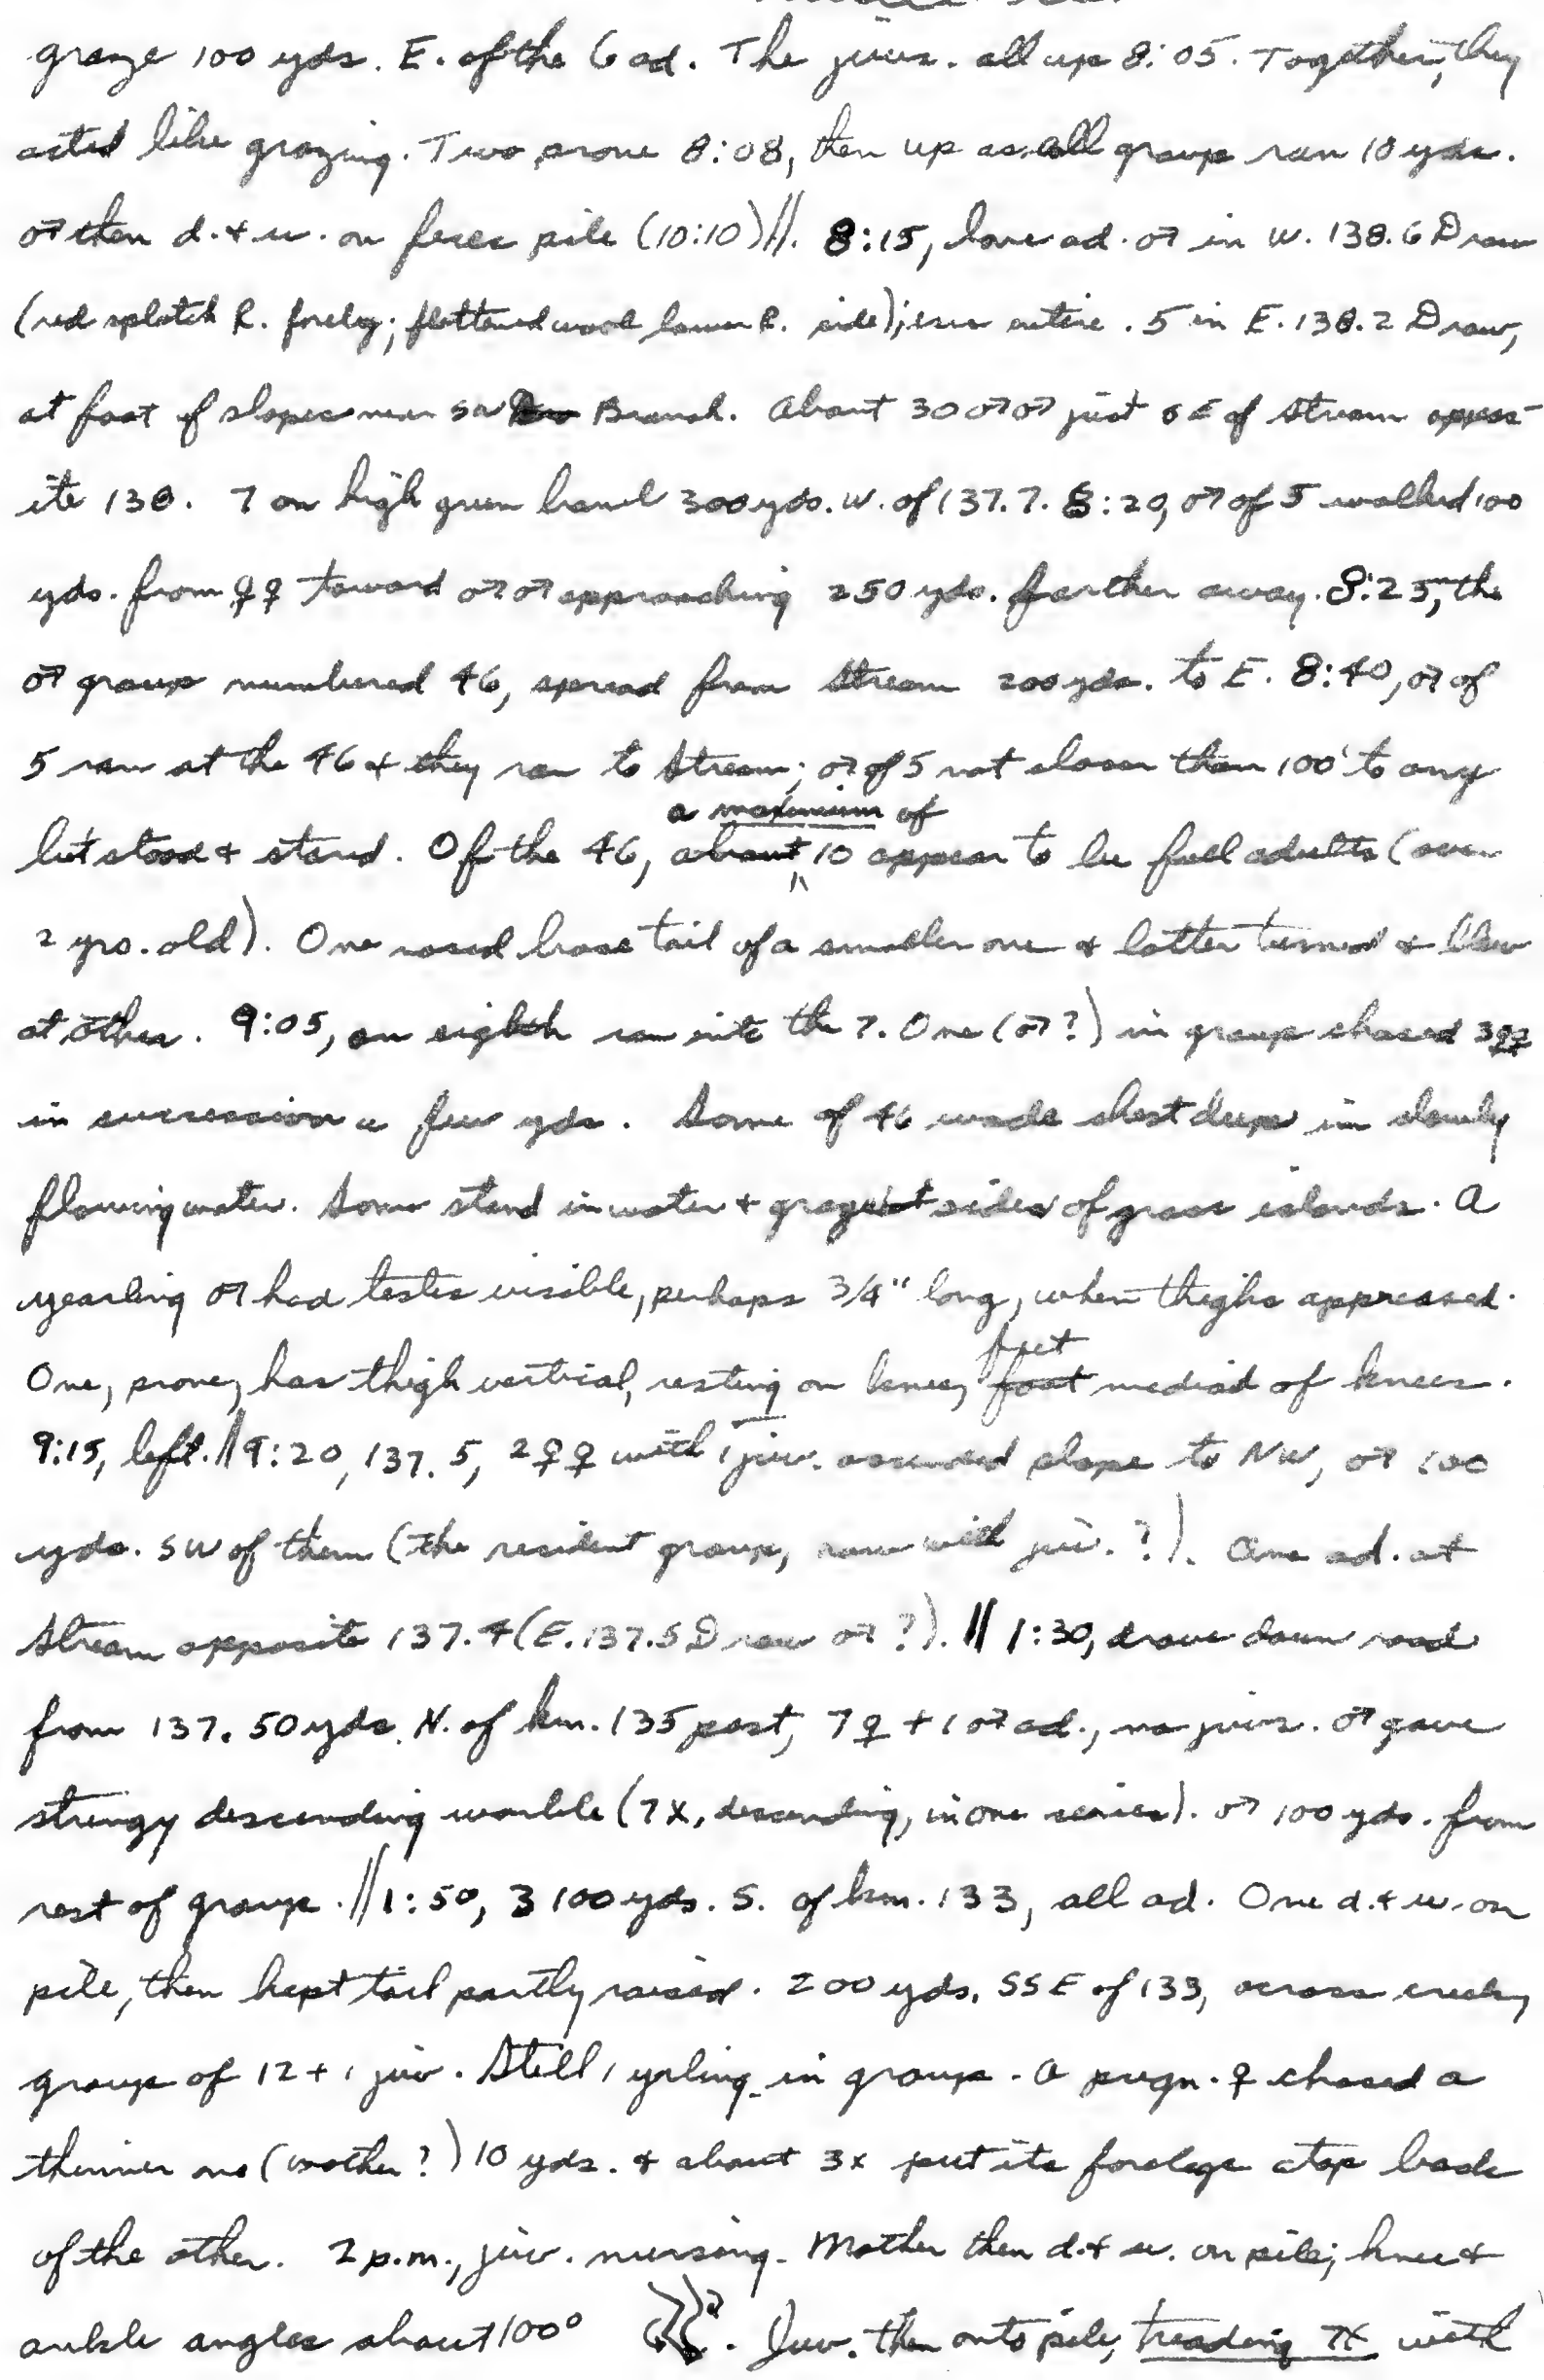 graze 100 yds. E. of the 6 ad. The juvs. all up 8:05. Together, they
acted like grazing. Two prone 8:08, then up as all group ran 10 yds.
♂ then d. + u. on feces pile (10:10)//. 8:15, lone ad. ♂ in W. 138.6 Draw
(red splotch R. foreleg; flattened wool lower R. side); ears entire. 5 in E. 138.2 Draw,
at foot of slopes near SW Branch. About 30 ♂♂ just SE of stream oppos-
ite 138. 7 on high green bowl 300 yds. W. of 137.7. 8:20, ♂ of 5 walked 100
yds. from ♀♀ toward ♂♂ approaching 250 yds. farther away. 8:25, the
♂ group numbered 46, spread from stream 200 yds. to E. 8:40, ♂ of
5 ran at the 46 + they ran to stream; ♂ of 5 not closer than 100' to any
but stood + stared. Of the 46, about a maximum of 10 appear to be full adults (over
2 yrs. old). One nosed base tail of a smaller one + latter turned + blew
at other. 9:05, an eighth ran into the 7. One (♂?) in group chased 3 ♀♀
in succession a few yds. Some of 46 wade chest deep in slowly
flowing water. Some stand in water + graze at sides of grass islands. A
yearling ♂ had testes visible, perhaps 3/4" long, when thighs appressed.
One, prone, has thigh vertical, resting on knees, foot feet mediad of knees.
9:15, left. // 9:20, 137.5, 2 ♀♀ with 1 juv. ascended slope to NW, ♂ 100
yds. SW of them (the resident group, now with juv.?). One ad. at
stream opposite 137.4 (E. 137.5 Draw ♂?). // 1:30, drove down road
from 137. 50 yds. N. of km. 135 post, 7 ♀ + 1 ♂ ad., no juvs. ♂ gave
stringy descending warble (7X, descending, in one series). ♂ 100 yds. from
rest of group. // 1:50, 3 100 yds. S. of km. 133, all ad. One d. + u. on
pile, then kept tail partly raised. 200 yds. SSE of 133, across creek,
group of 12 + 1 juv. Still 1 yrling. in group. A pregn. ♀ chased a
thinner one (mother?) 10 yds. + about 3x put its forelegs atop back
of the other. 2 p.m., juv. nursing. Mother then d. + u. on pile; knee +
ankle angles about 100° . Juv. then onto pile, treading 7X with